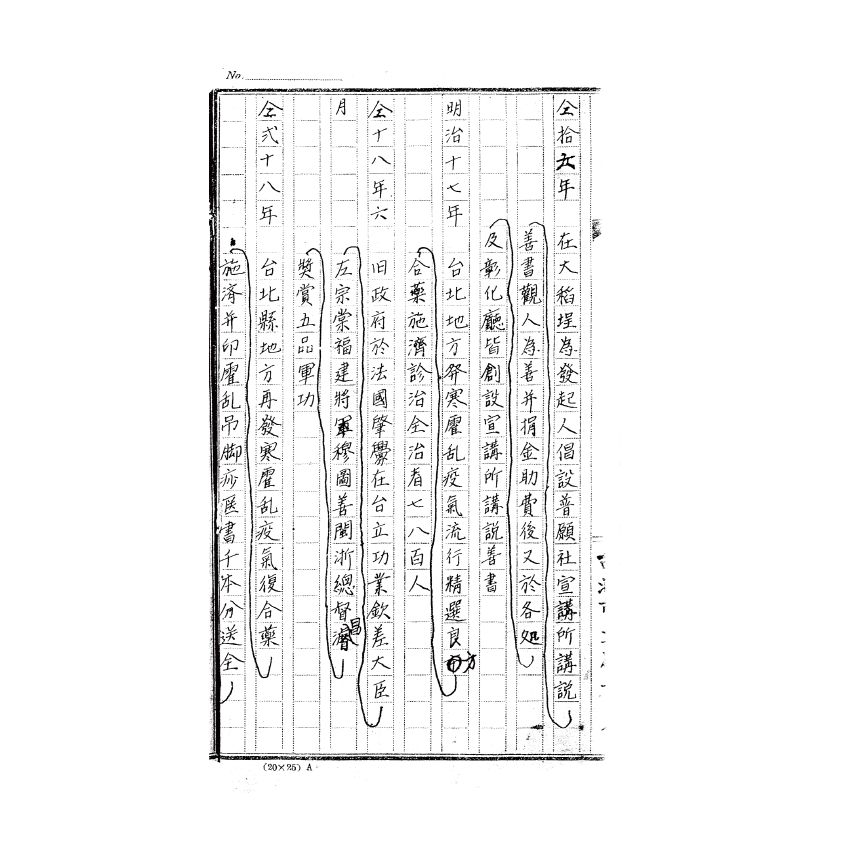 No.
仝拾六年 在大稻埕為發起人倡設普願社宣講所講説
善書觀人為善并捐金助費後又於各処
及彰化廳皆創設宣講所講説善書
明治十七年 台北地方發寒霍乱疫氣流行精選良方
合藥施濟診治全治者七八百人
仝十八年六 旧政府於法國肇釁在台立功業欽差大臣
月 左宗棠福建將軍穆圖善閩浙總督昌濬
獎賞五品軍功
仝弍十八年 台北縣地方再發寒霍乱疫氣復合藥
施濟并印霍乱吊脚痧医書千本分送全
(20×25) A